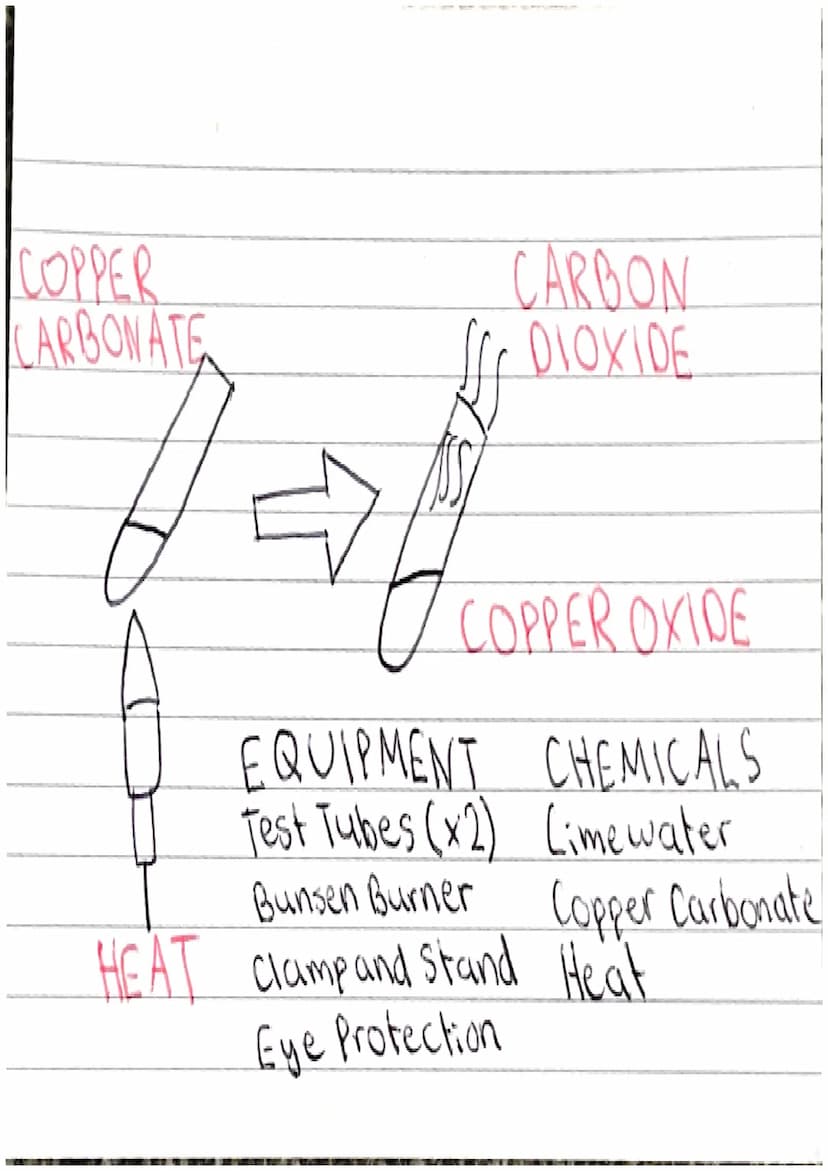 COPPER
CARBONATE
CARBON
DIOXIDE
COPPER OXIDE
HEAT
EQUIPMENT
Test Tubes (x2)
Bunsen Burner
Clamp and Stand
Eye Protection
CHEMICALS
Limewater
Copper Carbonate
Heat